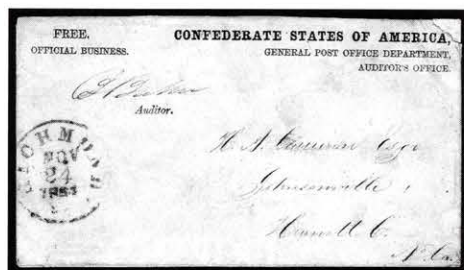 FREE.
OFFICIAL BUSINESS.
CONFEDERATE STATES OF AMERICA,
GENERAL POST OFFICE DEPARTMENT,
AUDITOR'S OFFICE.
Auditor.
RICHMOND
NOV
24
H. A. Cameron Esqr
Johnsonville,
Harnett C.
N. Ca.